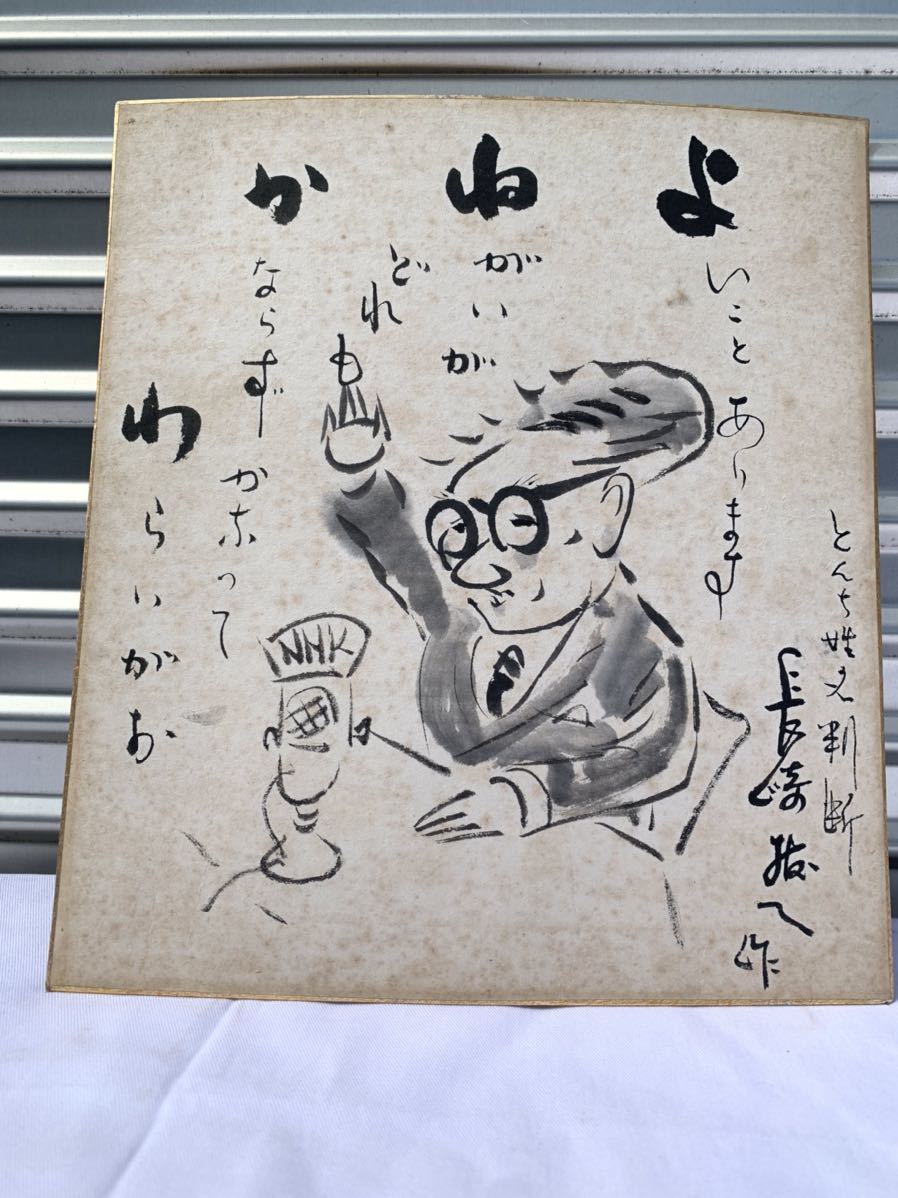 よいことあります
ねがいが
どれも
かならず
かなって
わらいがお
NHK
とんち姓名判断
長崎抜天作